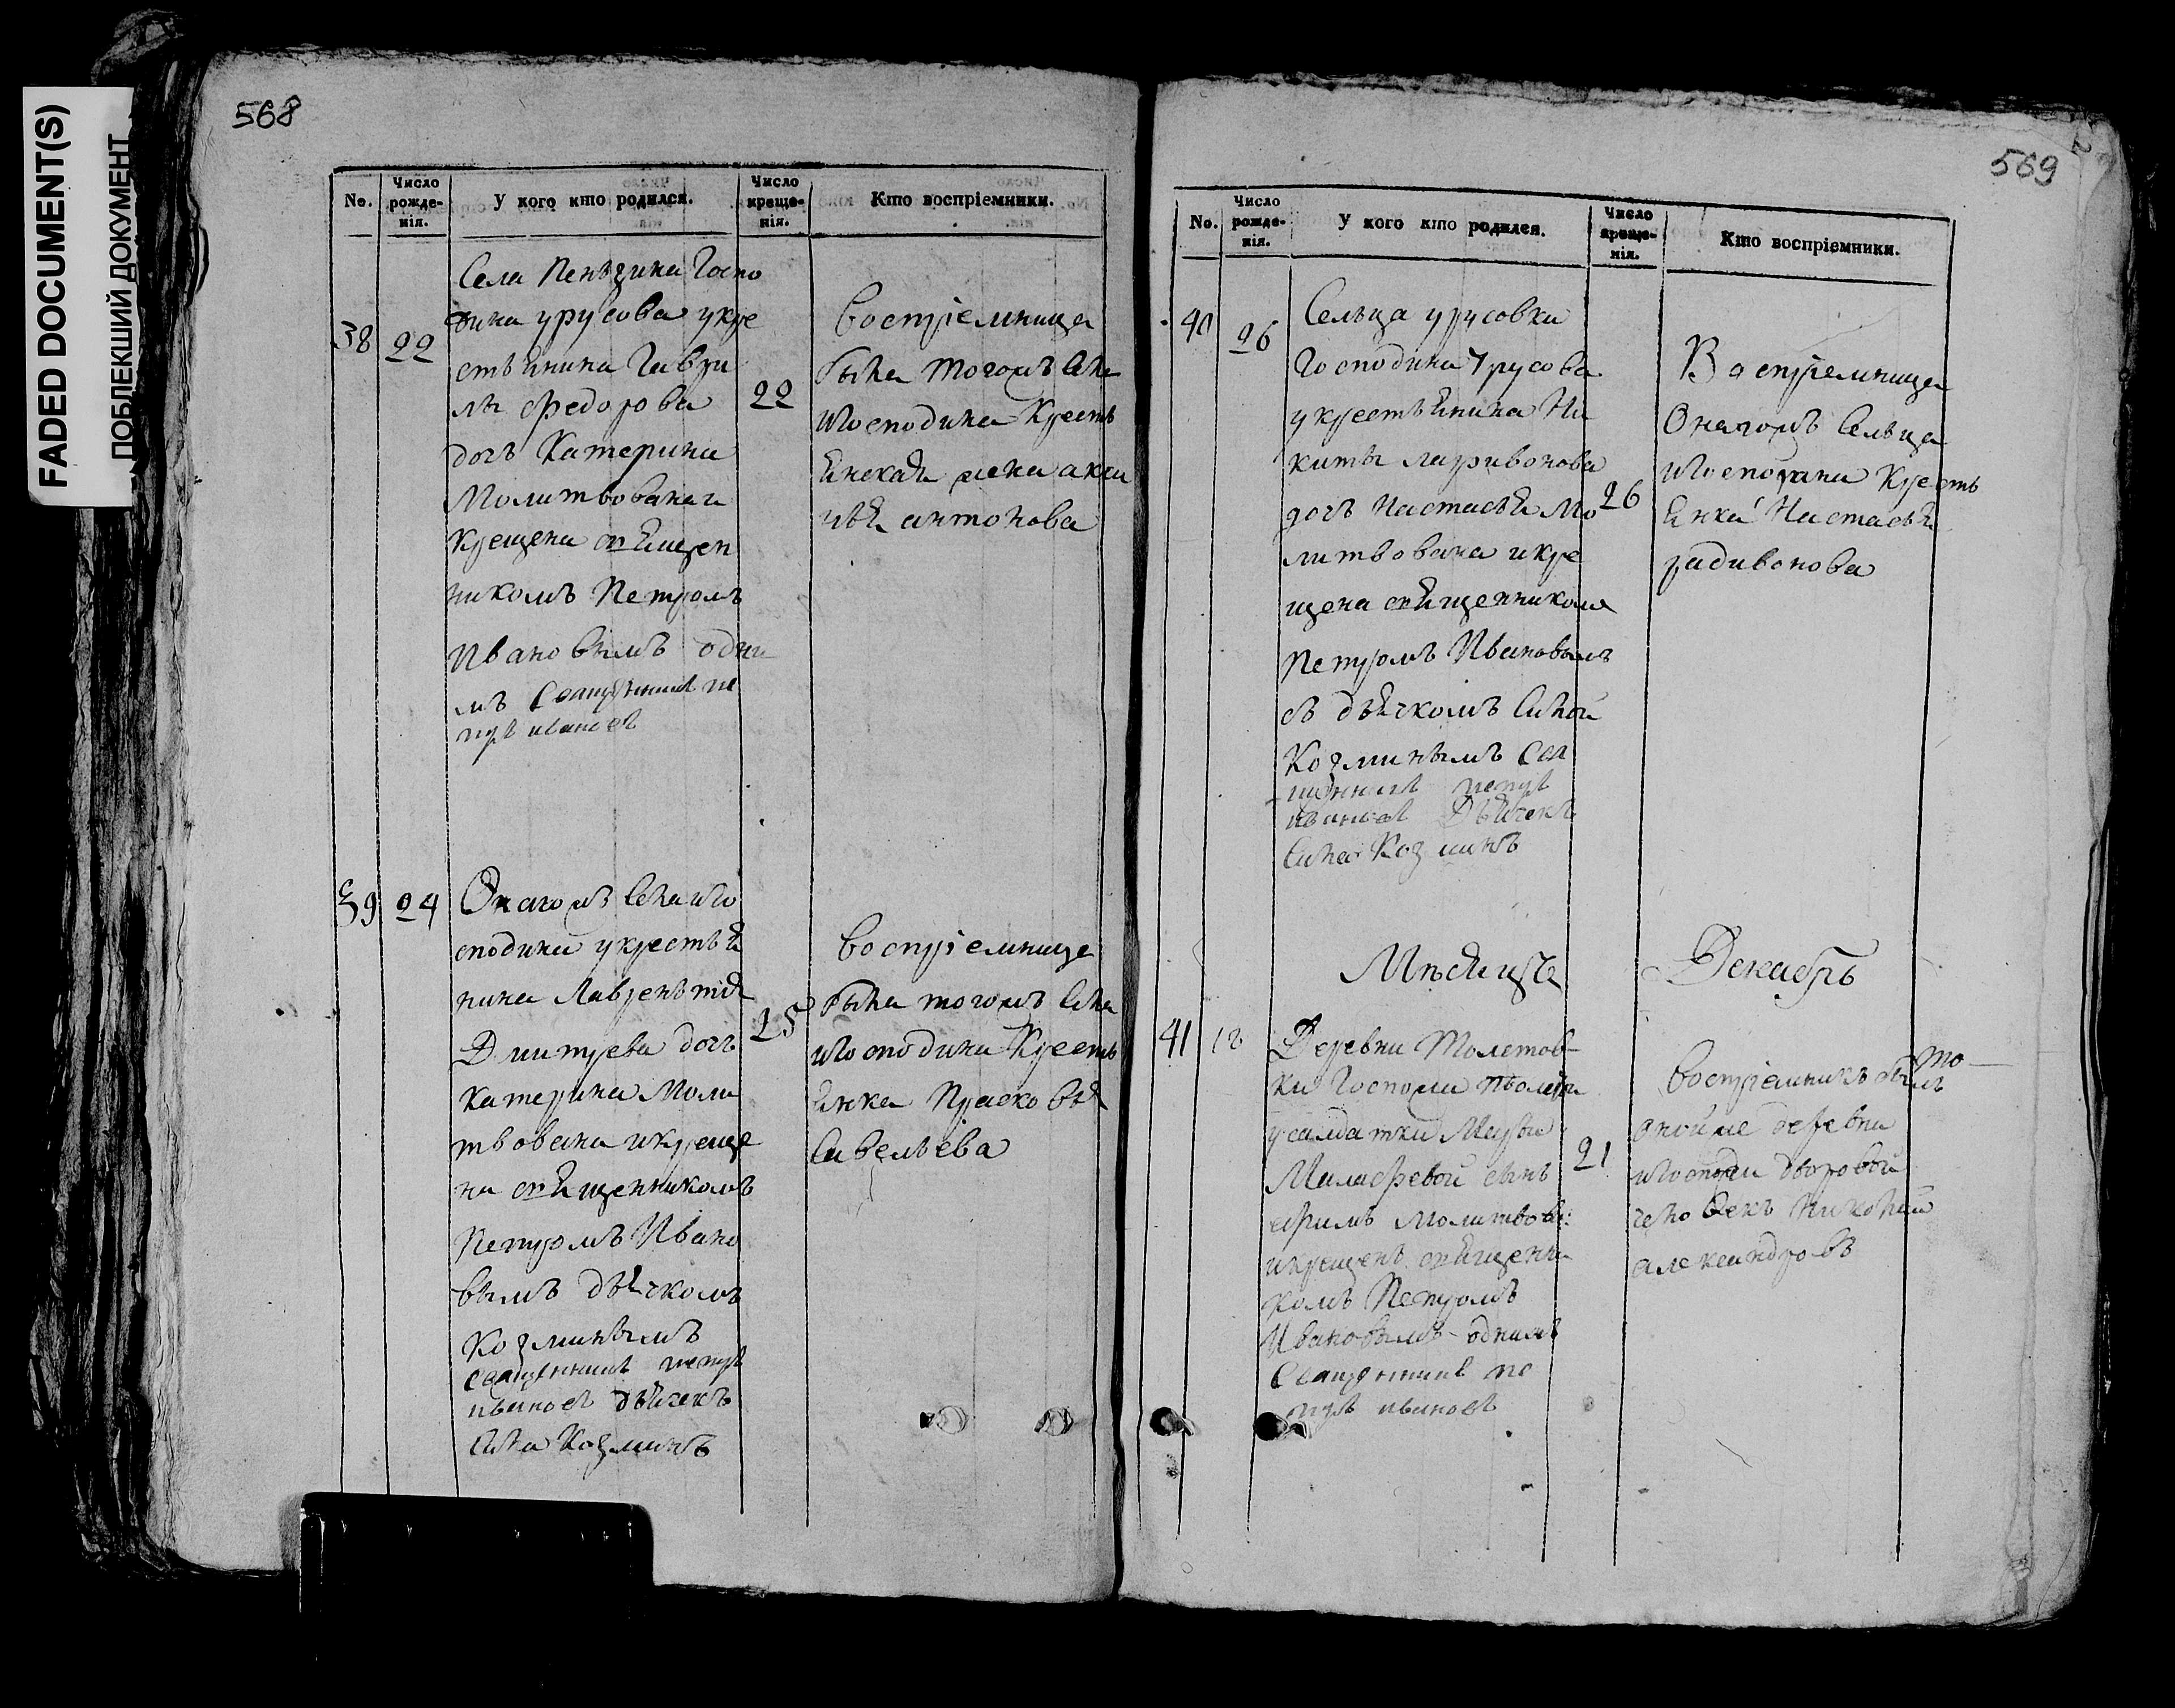 FADED DOCUMENT(S)
ПОБЛЕКШИЙ ДОКУМЕНТ
568
No. Число рожде-нія. У кого кто родился. Число креще-нія. Кто воспріемники.
Села Пенѣзина Госпо
дина урусова укре
38 22
стьянина Гаври
лы федорова
дочь Катерина
Молитвована и
Крещена священ
никомъ Петромъ
Ивановымъ одни
мъ Священникъ пе
тръ ивановъ
22
воспріемница
была тогожъ села
игосподина Кресть
янская жена акси
нья антонова
39 24
Онагожъ села иго
сподина укрестья
нина Лаврентія
Дмитрева дочь
катерина моли
твована икреще
на священникомъ
Петромъ Ивано
вымъ дьячкомъ
Козминымъ
Священникъ петръ
ивановъ дьячекъ
Сила Козминъ
25
воспріемница
была тогожъ села
игосподина Кресть
янка Прасковья
Савельева
569
No. Число рожде-нія. У кого кто родился. Число креще-нія. Кто воспріемники.
40 26
Сельца урусовки
Господина Урусова
укрестьянина Ни
киты ларивонова
дочь Настасья мо
литвована икре
щена священникомъ
Петромъ Ивановымъ
съ дьячкомъ Силой
Козминымъ Свя
щенникъ петръ
ивановъ Дьячекъ
Сила Козминъ
26
Воспріемница
Онагожъ Сельца
игосподина Кресть
янка Настасья
радивонова
Мѣсяцъ Декабрь
41
Деревни Толстов-
ки Госпожи
усалдатки Марьи
сынъ
ефимъ молитвова:
икрещенъ священни
комъ Петромъ
Ивановымъ однимъ
Священникъ пе
тръ ивановъ
21
воспріемникъ былъ то-
деревни
дворовой
человекъ Николай
александровъ